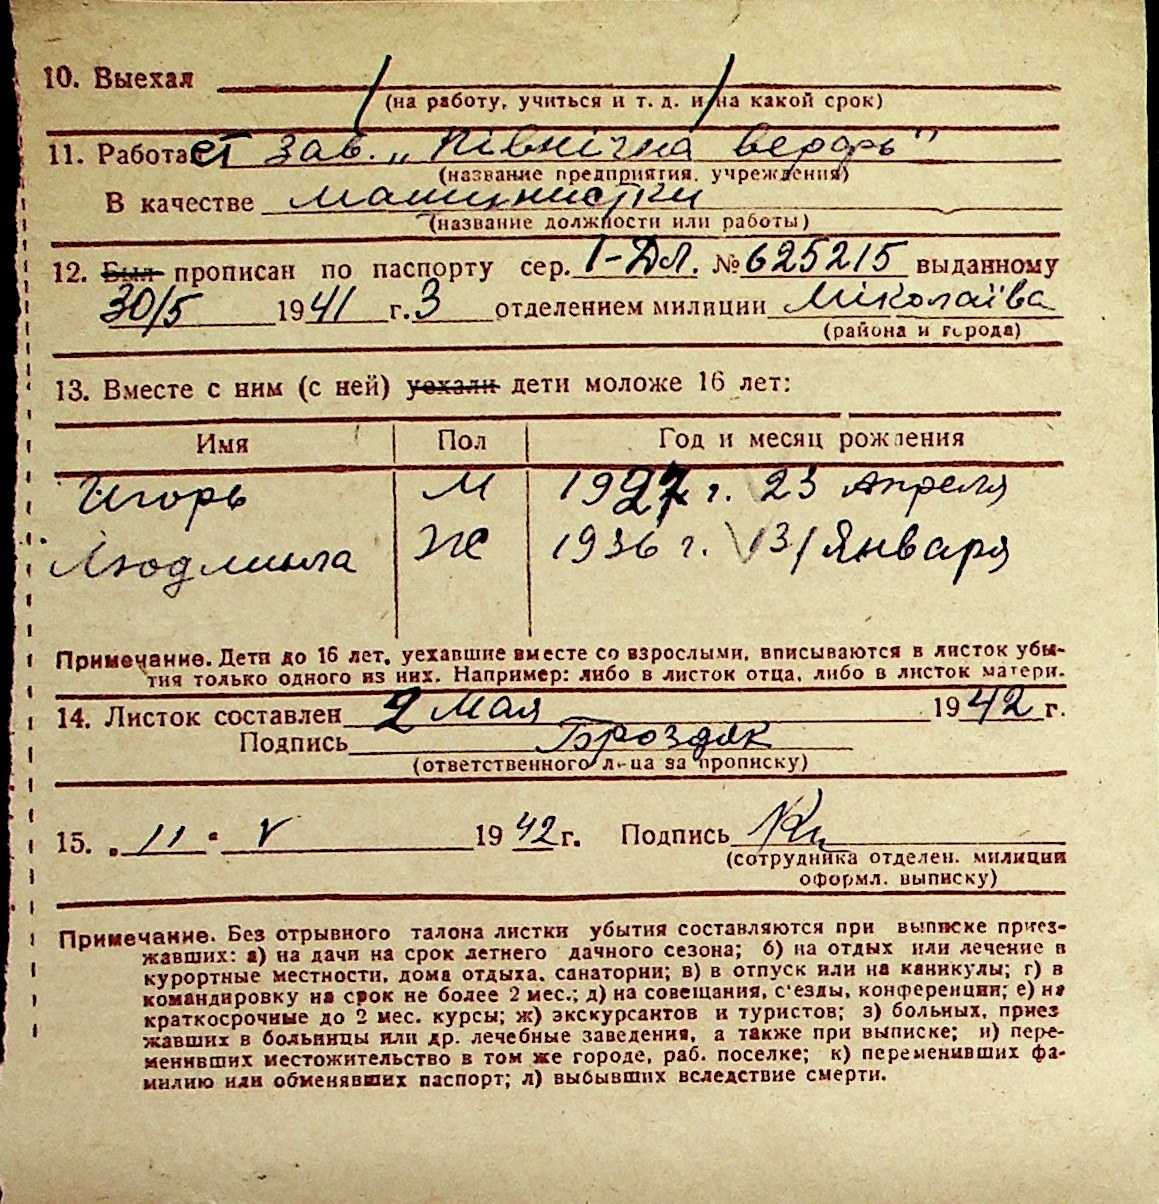 10. Выехал
(на работу, учиться и т. д. и на какой срок)
11. Работает зав. „Північна верфь"
(название предприятия, учреждения)
В качестве машинистки
(название должности или работы)
12. Был прописан по паспорту сер. I-ДЛ. № 625215 выданному
30/5 1941 г. 3 отделением милиции Міколаїва
(района и города)
13. Вместе с ним (с ней) уехали дети моложе 16 лет:
Имя Пол Год и месяц рождения
Игорь М 1927 г. 23 Апреля
Людмила Ж 1936 г. 13/ Января
Примечание. Дети до 16 лет, уехавшие вместе со взрослыми, вписываются в листок убы-
тия только одного из них. Например: либо в листок отца, либо в листок матери.
14. Листок составлен 2 Мая 1942 г.
ПодписьБроздяк
(ответственного лица за прописку)
15. „11" V 1942 г. Подпись
(сотрудника отделен. милиции
оформл. выписку)
Примечание. Без отрывного талона листки убытия составляются при выписке приез-
жавших: а) на дачи на срок летнего дачного сезона; б) на отдых или лечение в
курортные местности, дома отдыха, санатории; в) в отпуск или на каникулы; г) в
командировку на срок не более 2 мес.; д) на совещания, с'езды, конференции; е) на
краткосрочные до 2 мес. курсы; ж) экскурсантов и туристов; з) больных, приез
жавших в больницы или др. лечебные заведения, а также при выписке; и) пере-
менивших местожительство в том же городе, раб. поселке; к) переменивших фа-
милию или обменявших паспорт; л) выбывших вследствие смерти.